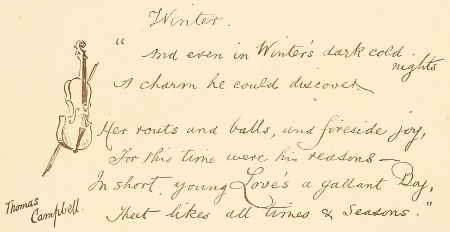 Winter.
" And even in Winter's dark cold nights
A charm he could discover.
Her routs and balls, and fireside joy,
For this time were his reasons —
In short, young Love's a gallant Boy,
That likes all times & seasons."
Thomas
Campbell.